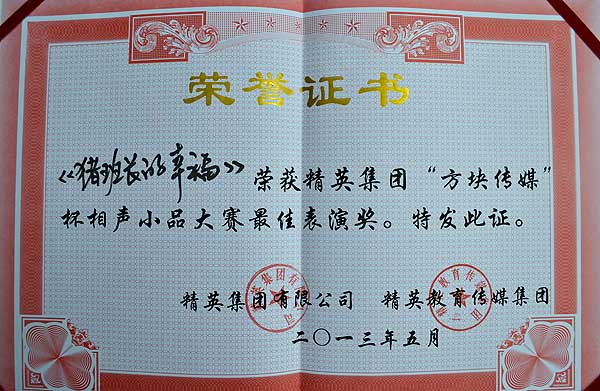 荣誉证书
《猪班长的幸福》荣获精英集团“方块传媒”
杯相声小品大赛最佳表演奖。特发此证。
精英集团有限公司 精英教育传媒集团
二〇一三年五月